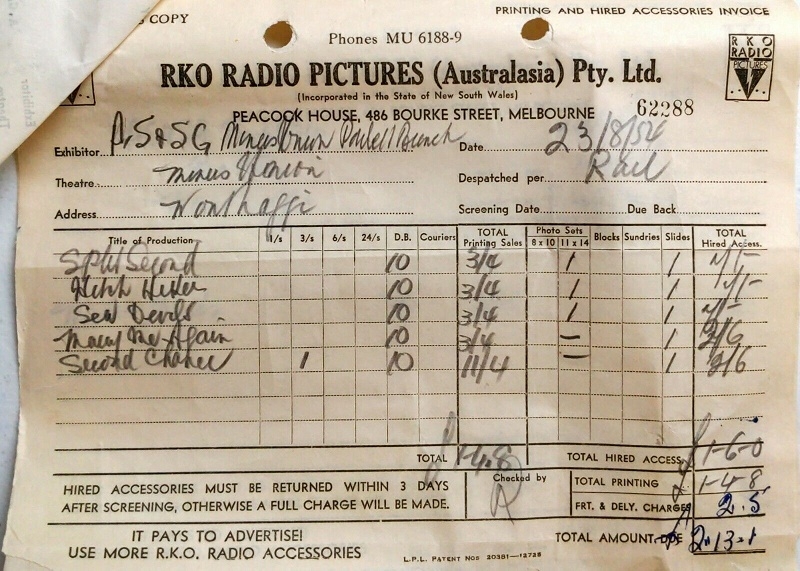 COPY
PRINTING AND HIRED ACCESSORIES INVOICE
Phones MU 6188-9
RKO RADIO PICTURES (Australasia) Pty. Ltd.
RKO RADIO PICTURES
(Incorporated in the State of New South Wales)
PEACOCK HOUSE, 486 BOURKE STREET, MELBOURNE 62288
Exhibitor Powlett Branch Date 23/8/54
Theatre Union Despatched per Rail
Address Wonthaggi Screening Date Due Back
Title of Production 1/s 3/s 6/s 24/s D.B. Couriers TOTAL Printing Sales Photo Sets 8 x 10 11 x 14 Blocks Sundries Slides TOTAL Hired Access.
Split Second 10 3/4 1 1 7/-
Hitch Hiker 10 3/4 1 1 7/-
Sea Devils 10 3/4 1 1 7/-
Marry Me Again 10 3/4 — 1 2/6
Second Chance 1 10 11/4 — 1 2/6
TOTAL £1-4-8 TOTAL HIRED ACCESS. £1-6-0
HIRED ACCESSORIES MUST BE RETURNED WITHIN 3 DAYS
AFTER SCREENING, OTHERWISE A FULL CHARGE WILL BE MADE.
Checked by
TOTAL PRINTING £1-4-8
FRT. & DELY. CHARGES 2.5
IT PAYS TO ADVERTISE!
USE MORE R.K.O. RADIO ACCESSORIES
L.P.L. PATENT Nos 20381—12738
TOTAL AMOUNT DUE £2.13.1